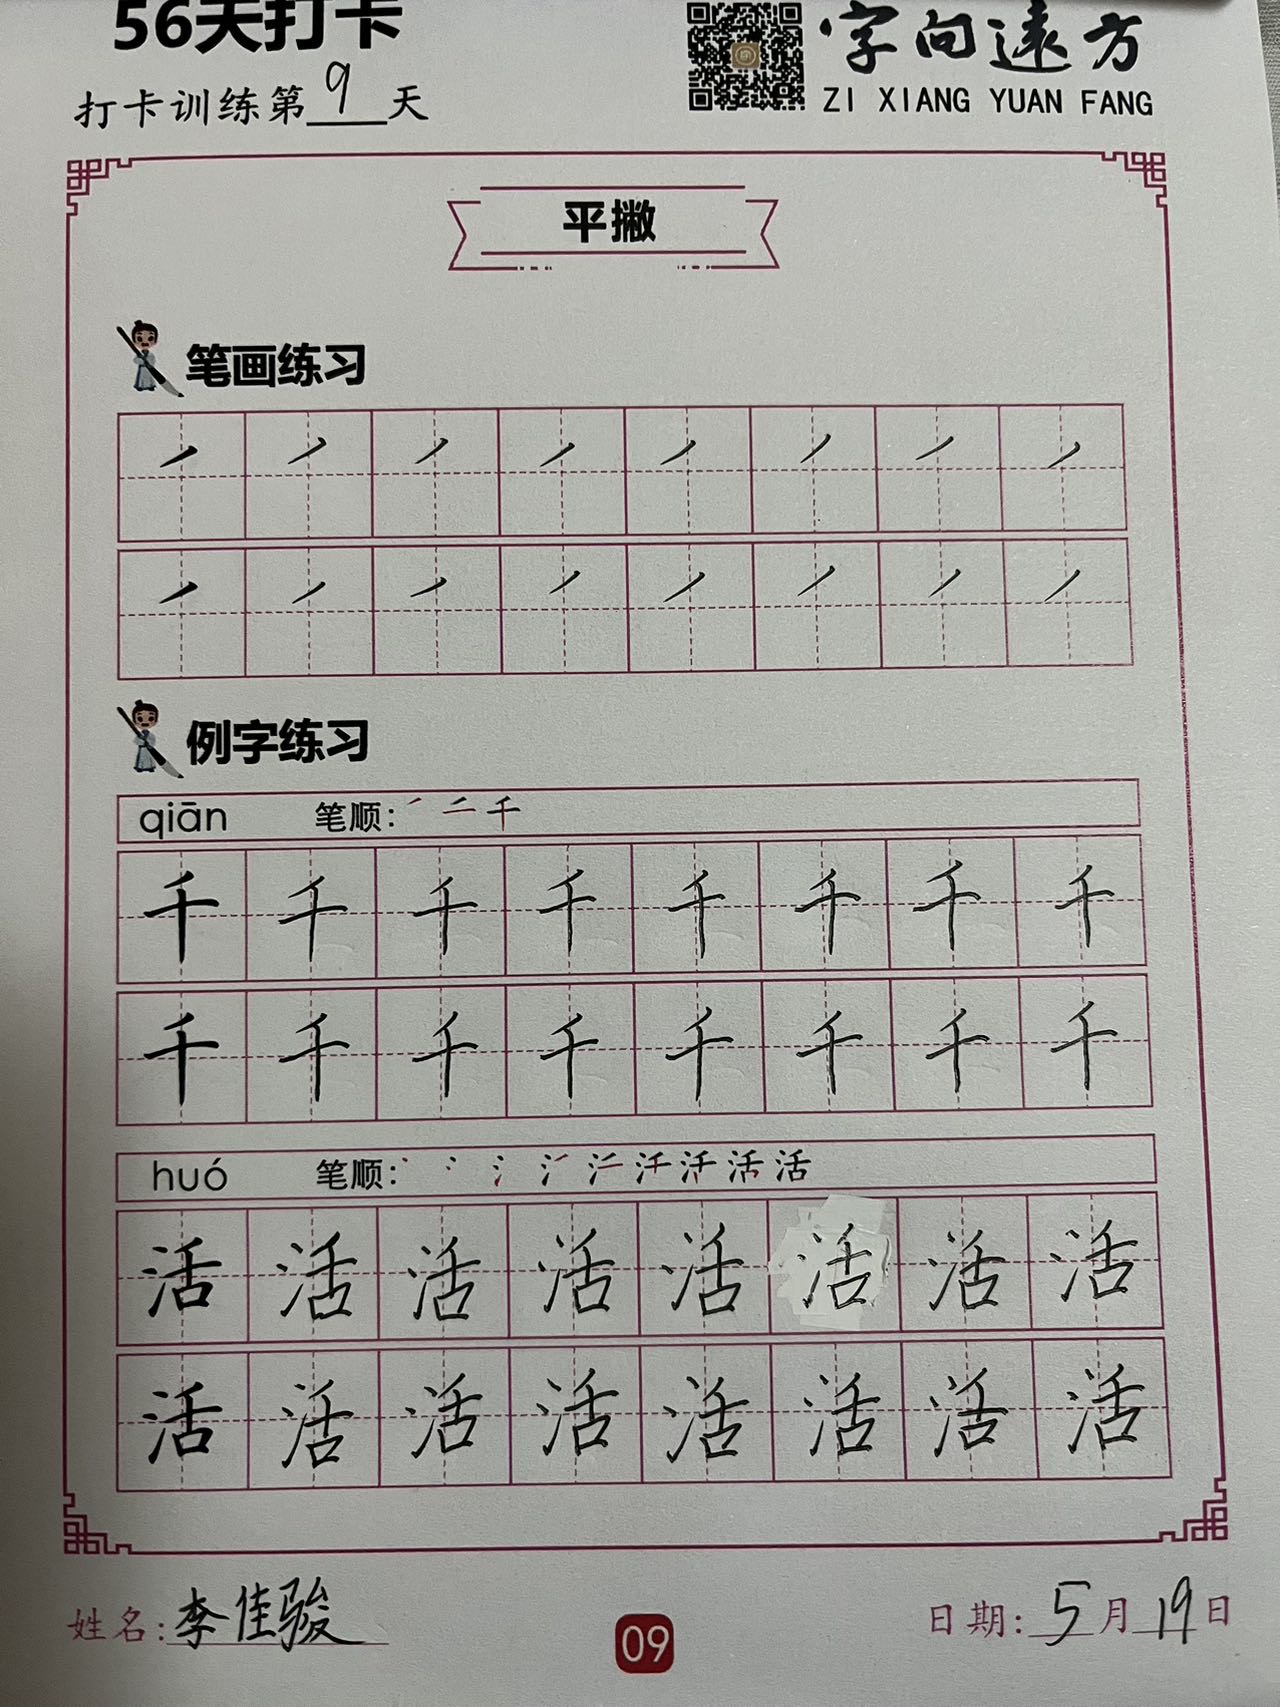 56天打卡
字向远方
打卡训练第9天
ZI XIANG YUAN FANG
平撇
笔画练习
㇒ ㇒ ㇒ ㇒ ㇒ ㇒ ㇒ ㇒
㇒ ㇒ ㇒ ㇒ ㇒ ㇒ ㇒ ㇒
例字练习
qiān 笔顺: ㇒ 二 千
千 千 千 千 千 千 千 千
千 千 千 千 千 千 千 千
huó 笔顺: 活
活 活 活 活 活 活 活 活
活 活 活 活 活 活 活 活
姓名:李佳骏
09
日期:5月19日